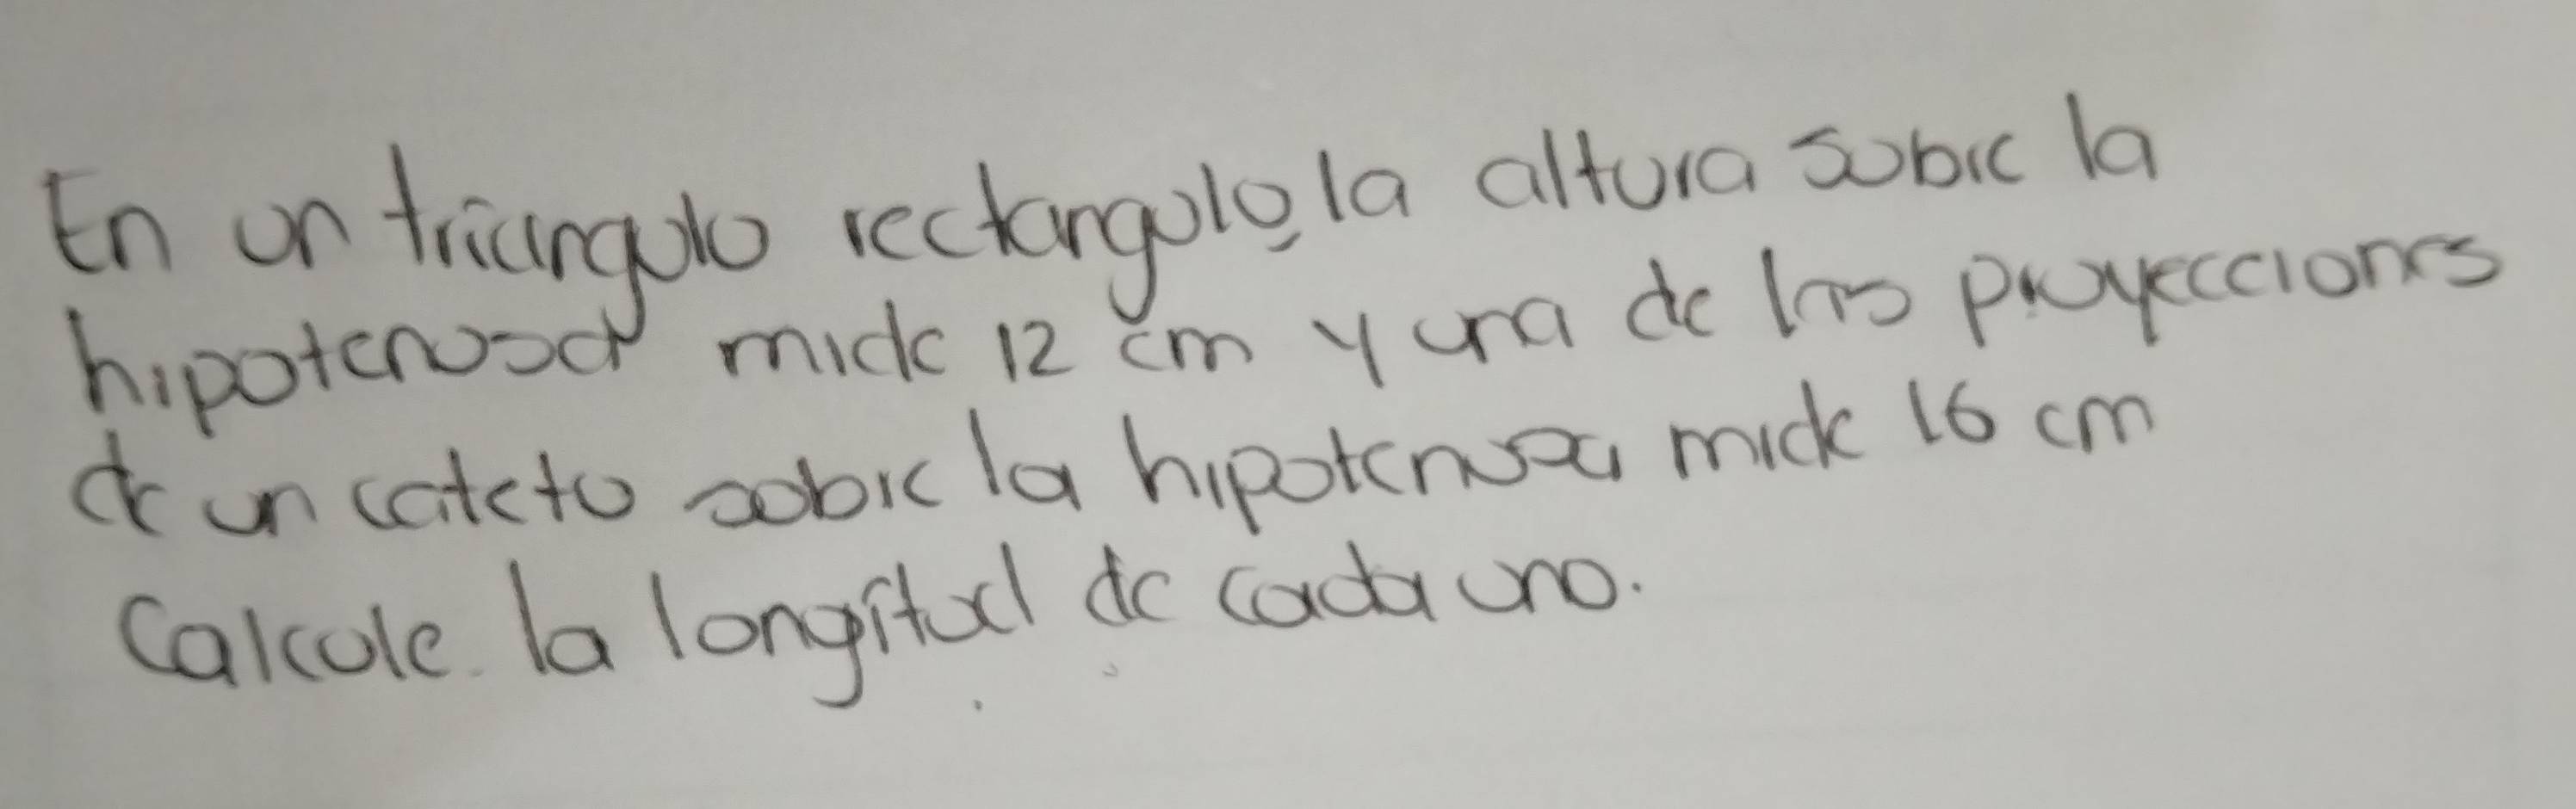 En un triangulo rectangulo, la altura sobre la
hipotenusa mide 12 cm y una de las proyecciones
de un cateto sobre la hipotenusa mide 16 cm
Calcule la longitud de cada uno.